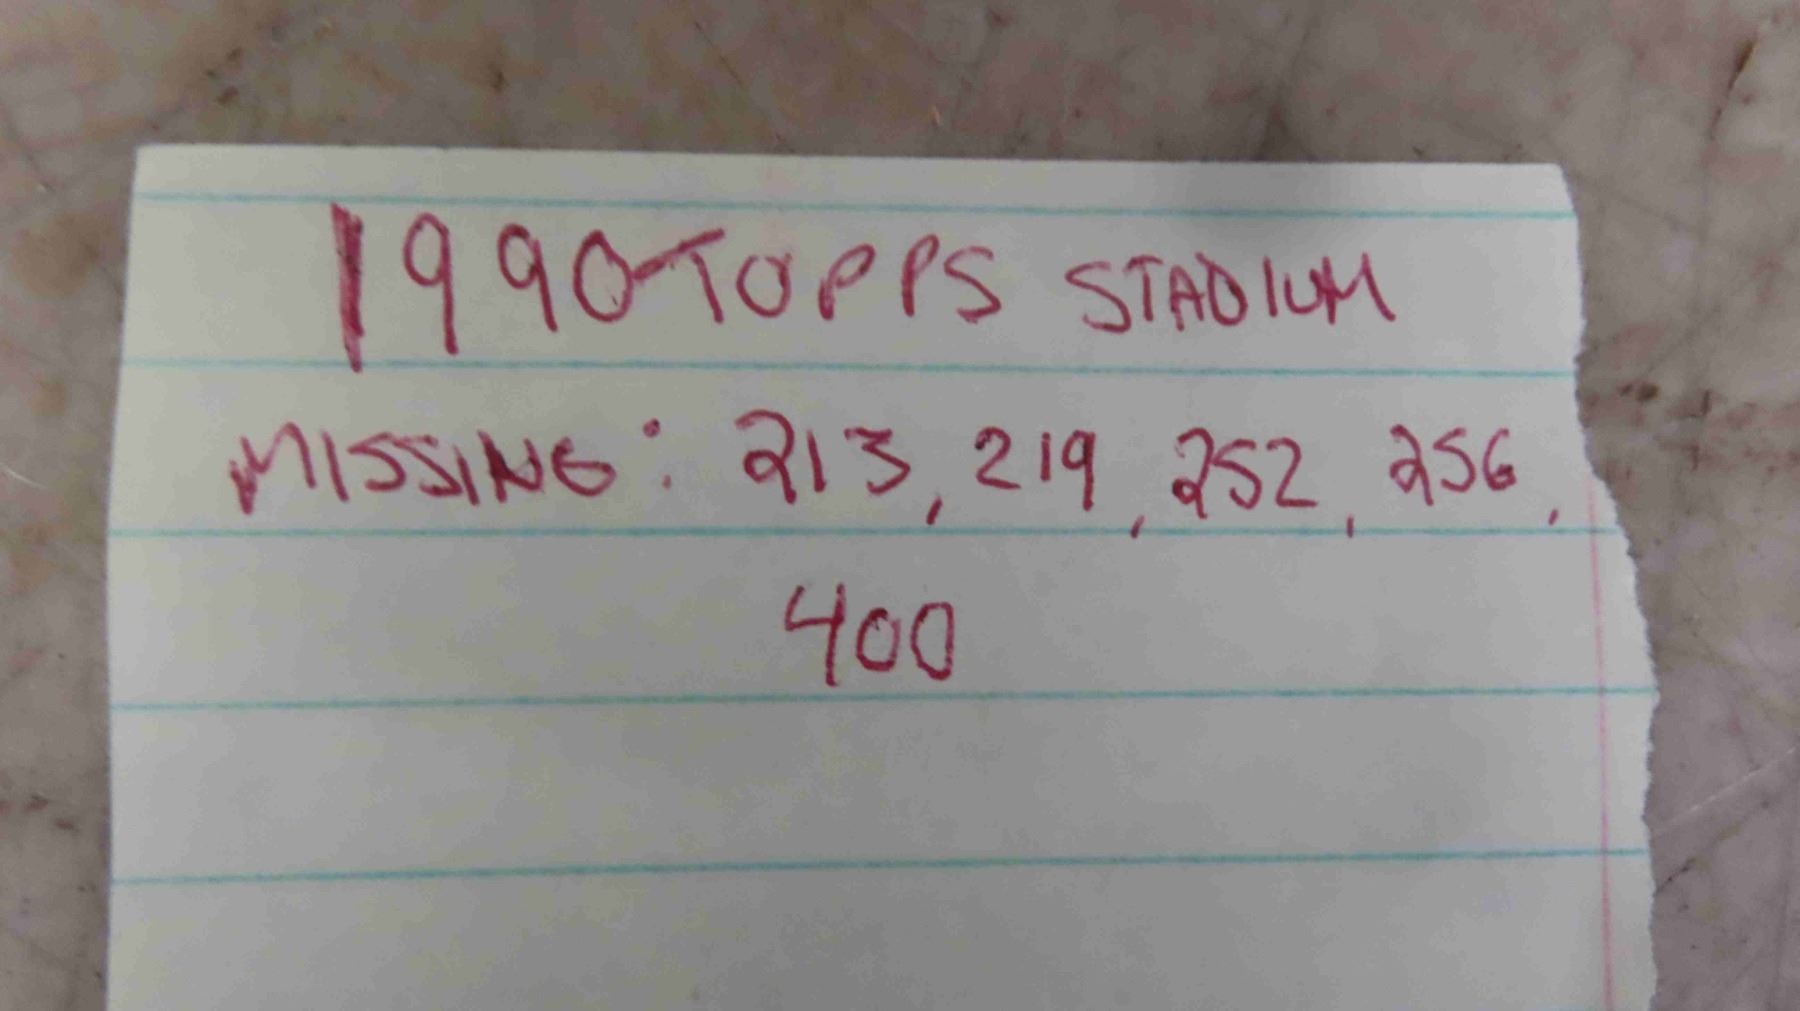 1990 TOPPS STADIUM
MISSING: 213, 219, 252, 256,
400